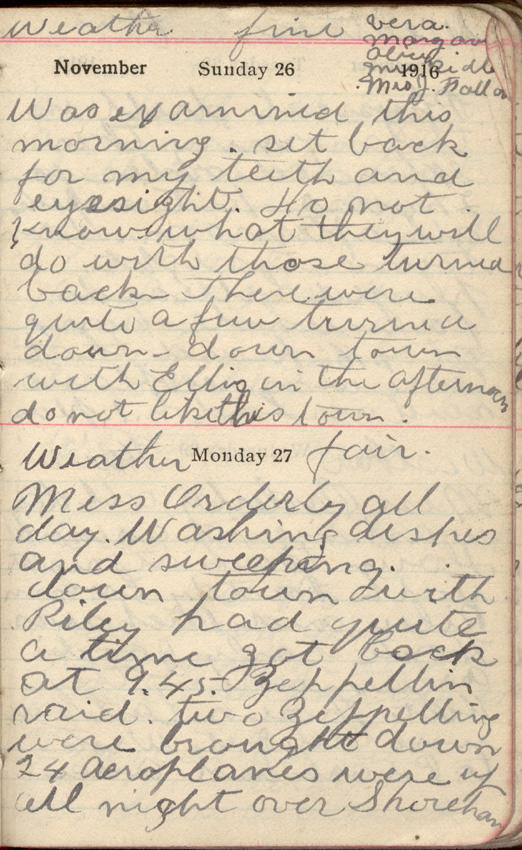 Weather fine Vera.
Margar
Alice
November Sunday 26 1916
Miss J. Fallon
Was exammined this
morning. set back
for my teeth and
eyesight. Do not
know what they will
do with those turned
back. There were
quite a few turned
down - down town
with Ellis in the afternoon
do not like this town.
Weather Monday 27 fair.
Mess Orderly all
day. Washing dishes
and sweeping.
down town with
Riley had quite
a time got back
at 9.45. Zeppellin
raid. two Zeppelling
were brought down
24 Aeroplanes were up
all night over Shoreham